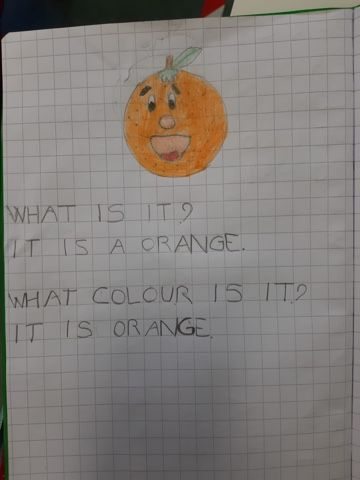 WHAT IS IT?
IT IS A ORANGE.
WHAT COLOUR IS IT?
IT IS ORANGE.